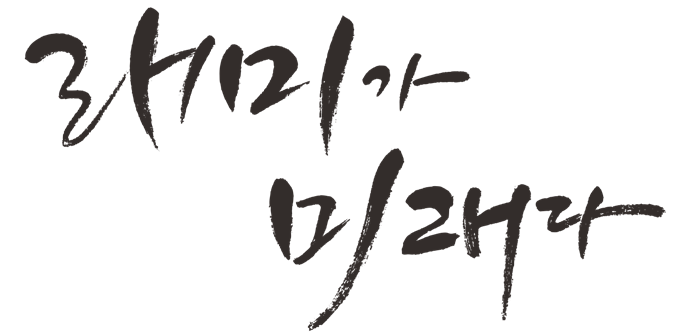 래미가
미래다